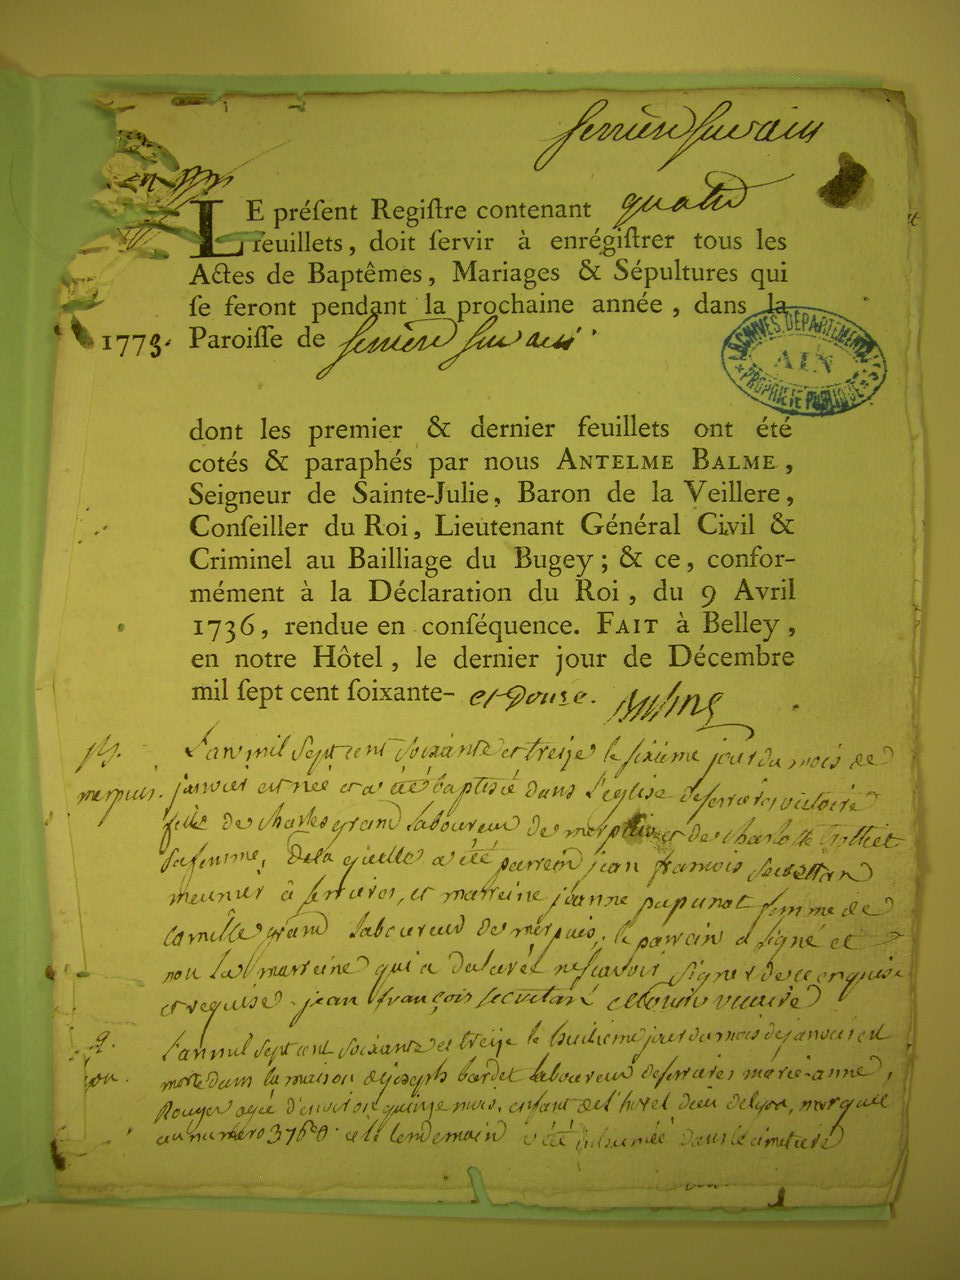 LE préſent Regiſtre contenant quatre
feuillets, doit ſervir à enrégiſtrer tous les
Actes de Baptêmes, Mariages & Sépultures qui
ſe feront pendant la prochaine année, dans la
1773. Paroiſſe de
ARCHIVES DÉPARTEMENTALES
AIN
PROPRIÉTÉ PUBLIQUE
dont les premier & dernier feuillets ont été
cotés & paraphés par nous ANTELME BALME,
Seigneur de Sainte-Julie, Baron de la Veillere,
Conſeiller du Roi, Lieutenant Général Civil &
Criminel au Bailliage du Bugey; & ce, confor-
mément à la Déclaration du Roi, du 9 Avril
1736, rendue en conſéquence. FAIT à Belley,
en notre Hôtel, le dernier jour de Décembre
mil ſept cent ſoixante- et Douze.
L'an mil sept cent soixante et treize le sixième jour du mois de
janvier est née et a été baptisée dans l'église de victoire
fille de charles grand laboureur de et de charlotte
sa femme, de la quelle a été parrein jean françois
meunier à et marreine jeanne femme de
camille grand laboureur de le parrain a signé et
non la marreine qui a déclaré ne scavoir signer de ce enquise
et requise jean françois vicaire
9. L'an mil sept cent soixante et treize le huitième jour du mois de janvier est
morte dans la maison de joseph laboureur de marie-anne
agée d'environ quinze mois, enfant de l'hotel dieu de lyon, marquée
au numero et le lendemain a été inhumée dans le cimetiere